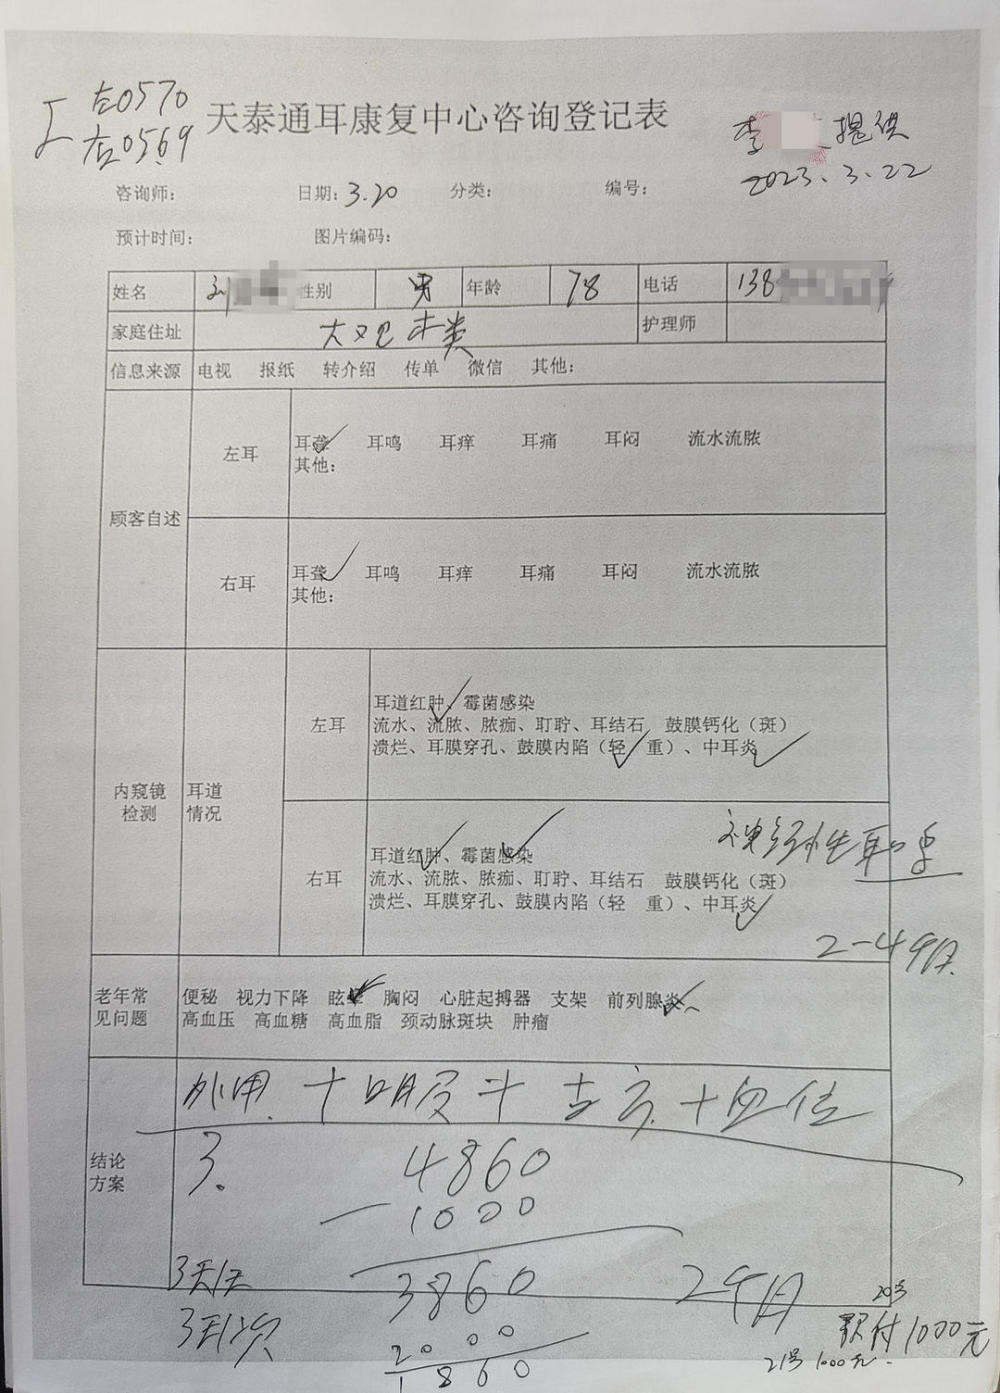 左0570
右0569
天泰通耳康复中心咨询登记表
李 提供
2023.3.22
咨询师: 日期: 3.20 分类: 编号:
预计时间: 图片编码:
姓名 刘 性别 男 年龄 78 电话 138
家庭住址 护理师
信息来源 电视 报纸 转介绍 传单 微信 其他:
顾客自述
左耳
耳聋 耳鸣 耳痒 耳痛 耳闷 流水流脓
其他:
右耳
耳聋 耳鸣 耳痒 耳痛 耳闷 流水流脓
其他:
内窥镜
检测
耳道
情况
左耳
耳道红肿、霉菌感染
流水、流脓、脓痂、耵聍、耳结石 鼓膜钙化（斑）
溃烂、耳膜穿孔、鼓膜内陷（轻 重）、中耳炎
右耳
耳道红肿、霉菌感染
流水、流脓、脓痂、耵聍、耳结石 鼓膜钙化（斑）
溃烂、耳膜穿孔、鼓膜内陷（轻 重）、中耳炎
神经性耳聋
2-4个月
老年常
见问题
便秘 视力下降 眩晕 胸闷 心脏起搏器 支架 前列腺炎
高血压 高血糖 高血脂 颈动脉斑块 肿瘤
结论
方案
外用 + 口服 + +穴位
3.
4860
-1000
3860
2000
1860
3天1次
2个月
20号
现付1000元
21号1000元.